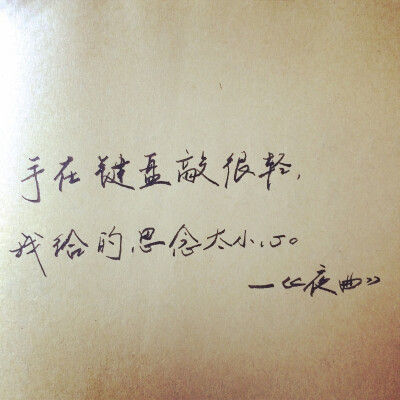 手在键盘敲很轻，
我给的思念太小心。
—《夜曲》